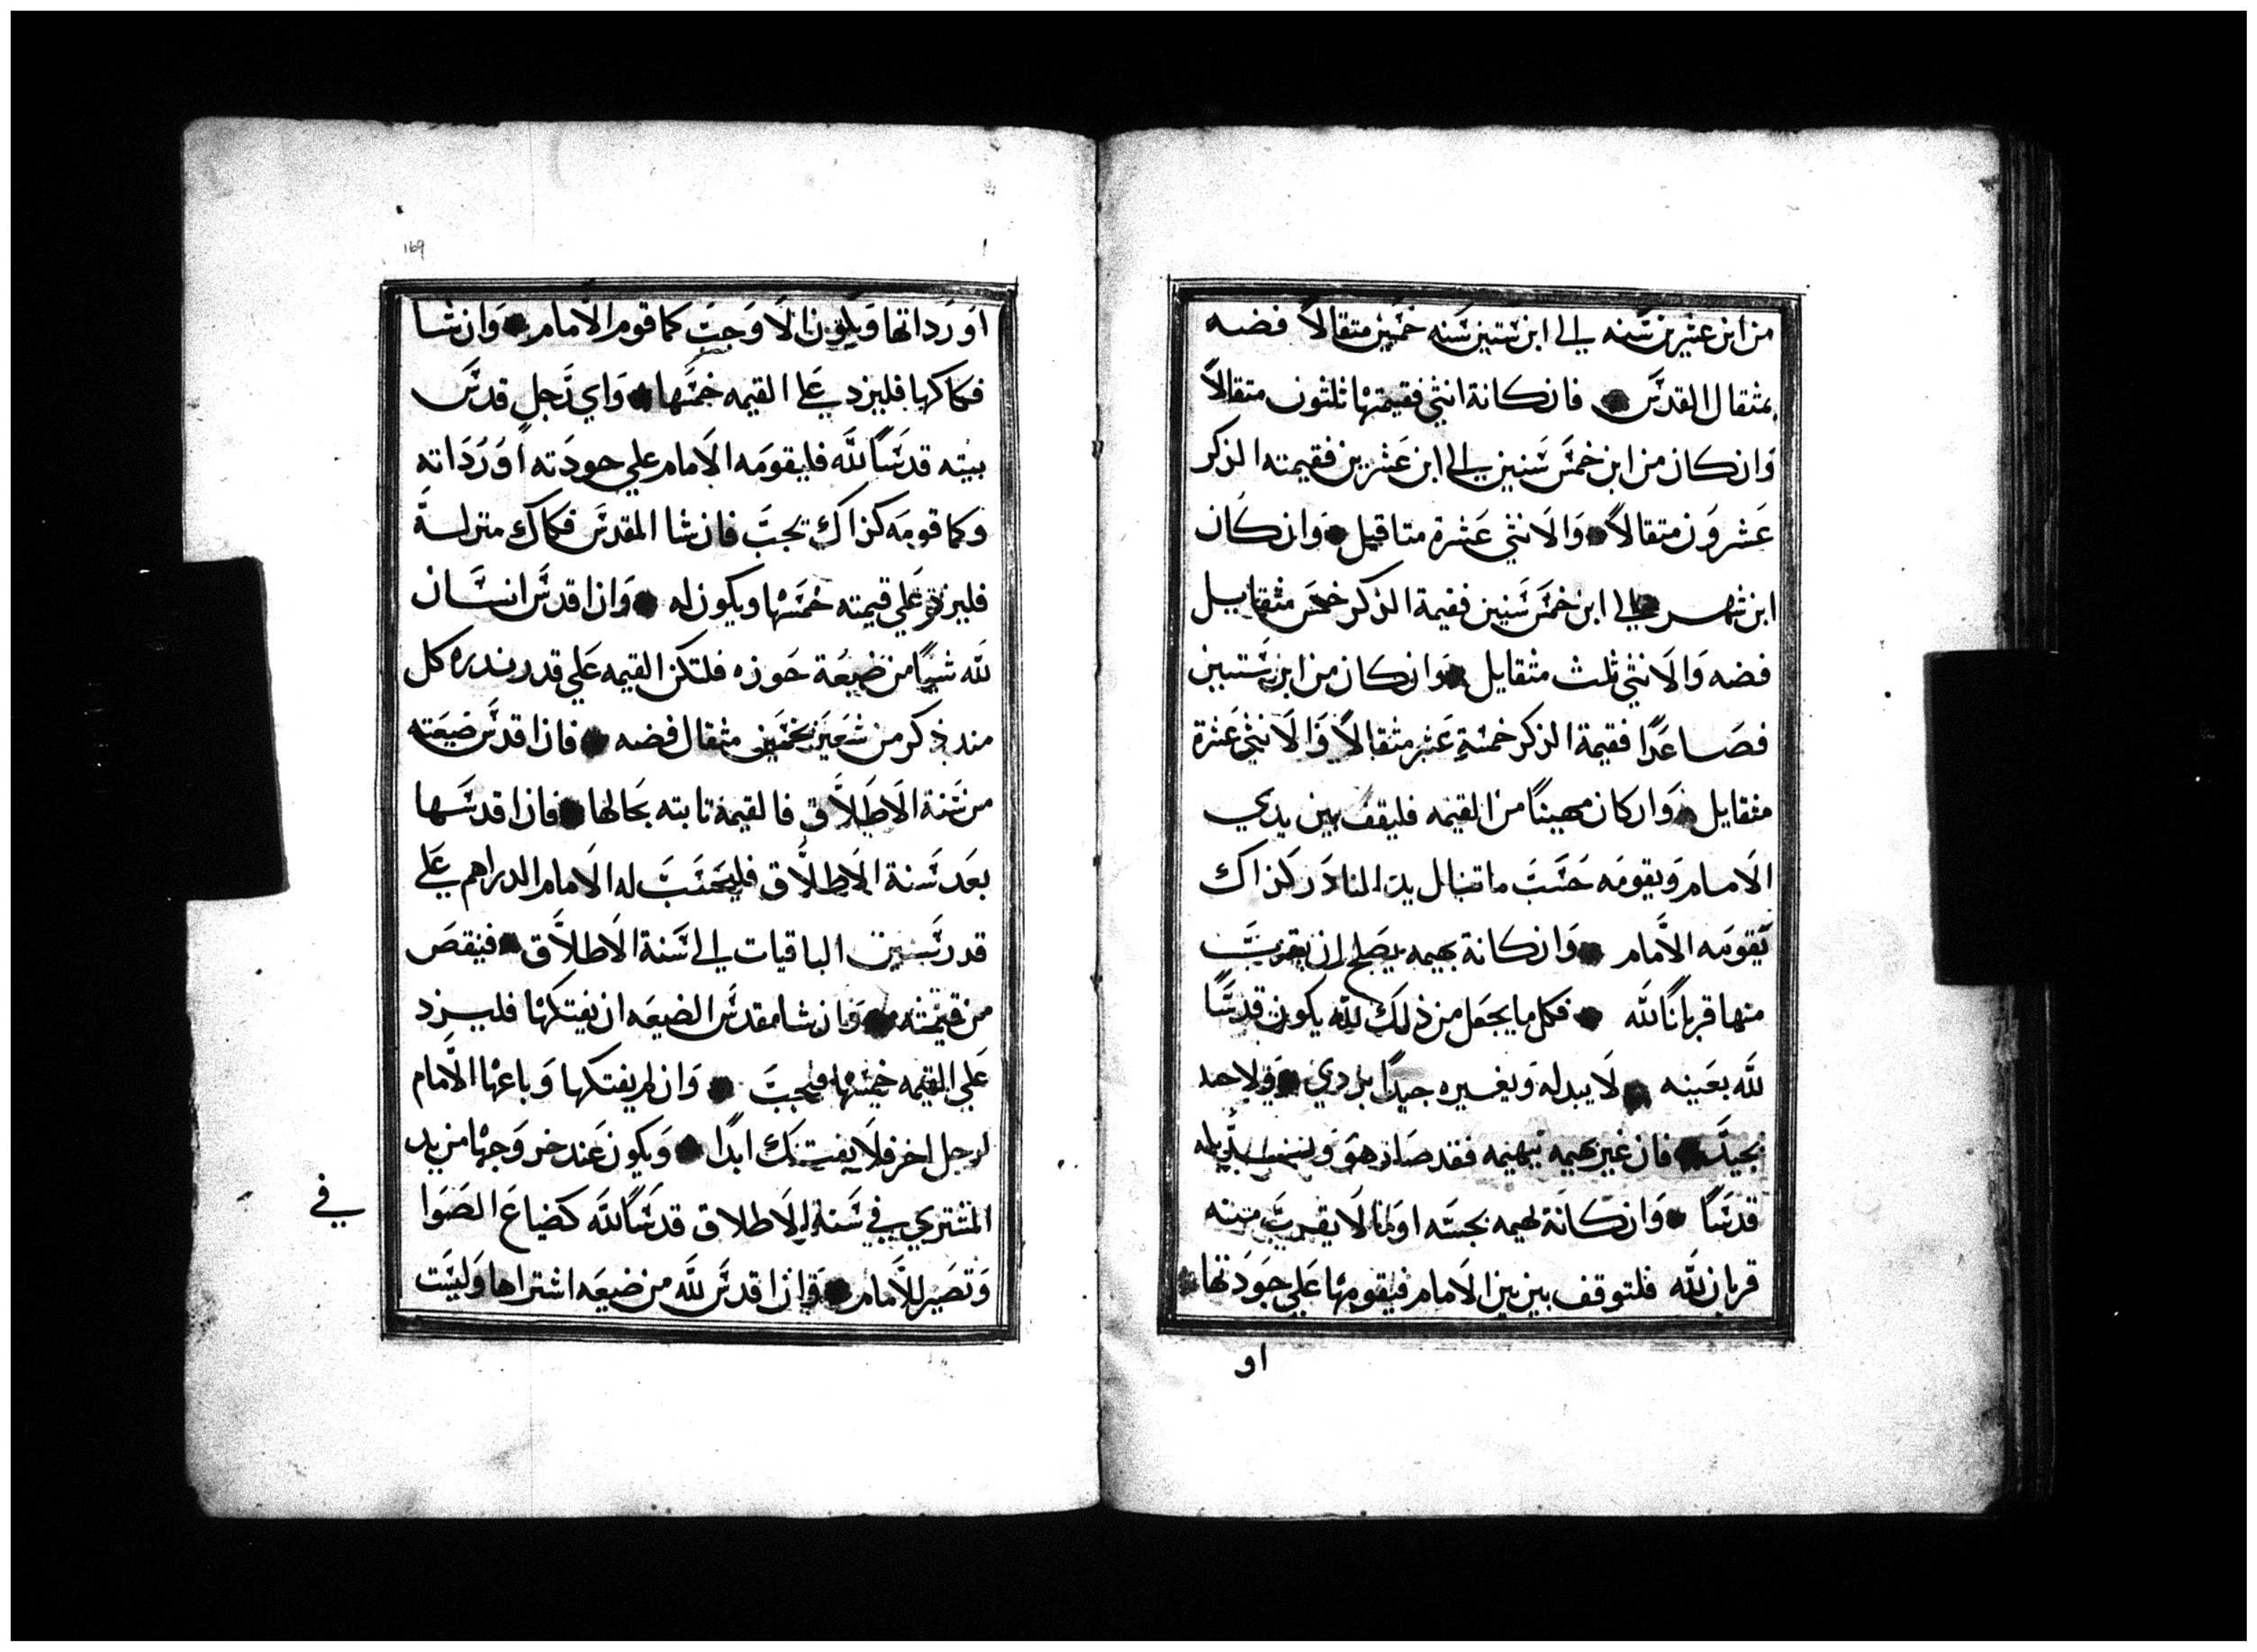 من ابن عشرين سنه الي ابن ستين سنه خمسين مثقالاً فضه
بمثقال القدس فان كانة انثي فقيمتها ثلثون متقالاً
وان كان من ابن خمس سنين الي ابن عشرين فقيمته الذكر
عشرون متقالاً والانثي عشرة متاقيل وان كان
ابن شهر الي ابن خمس سنين فقيمة الذكر خمس مثقايل
فضه والانثي ثلث مثقايل وان كان من ابن ستين
فصاعدًا فقيمة الذكر خمسة عشر مثقالاً والانثي عشرة
مثقايل وان كان مهينًا من القيمه فليقف بين يدي
الامام ويقومه حسب ما تنال يد الناذر كذاك
يقومه الامام وان كانة بهيمه يصلح ان يقرب
منها قربانًا لله فكل ما يجعل من ذلك لله يكون قدسًا
لله بعينه لا يبدله ويغيره جيدًا بردي ولا
بجيد فان غير بهيمه ببهيمه فقد صار هو
قدسًا وان كانة بهيمه نجسه لا يقرب منه
قربان لله فلتوقف بين الامام فيقومها علي جودتها
او
169
او رداتها وجب كما قوم الامام وان شا
فكاكها فليزد علي القيمه خمسها واي رجل قدس
بيته قدسًا لله فليقومه الامام علي جودته او رداته
وكما قومه كذاك تجب فان شا المقدس فكاك منزله
فليزد علي قيمته خمسها ويكون له وان اقدس انسان
لله شيًا من ضيعة حوزه فلتكن القيمه علي قدر بذره كل
من شعير بخمسين مثقال فضه فان اقدس ضيعته
من سنة الاطلاق فالقيمة ثابته بحالها فان اقدسها
بعد سنة الاطلاق فليحسب له الامام الدراهم علي
قدر سنين الباقيات الي سنة الاطلاق فينقص
من قيمته وان شا مقدس الضيعه ان يفتكها فليزد
علي القيمه خمسها فتجب وان لم يفتكها وباعها الامام
لرجل اخر فلا يفتك ابدًا ويكون عند خروجها من يد
المشتري في سنة الاطلاق قدسًا لله كضياع الصوا
وتصير للامام وان اقدس لله من ضيعه اشتراها وليست
في